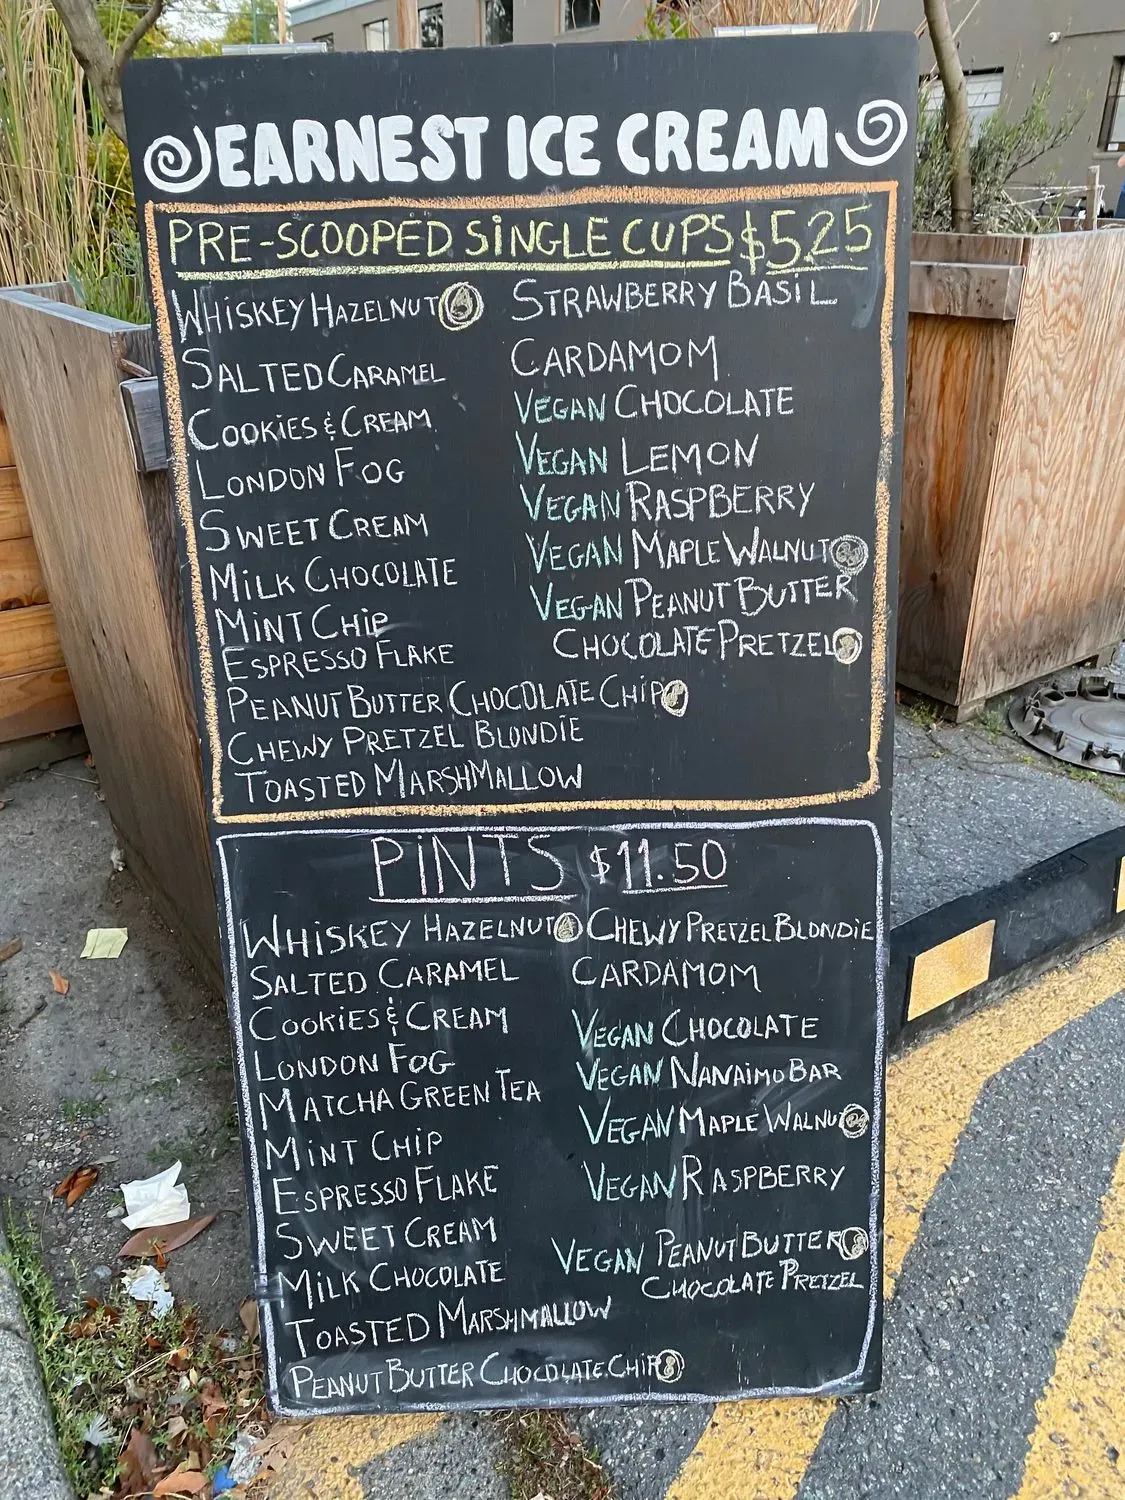 EARNEST ICE CREAM
PRE-SCOOPED SINGLE CUPS $5.25
WHISKEY HAZELNUT
SALTED CARAMEL
COOKIES & CREAM
LONDON FOG
SWEET CREAM
MILK CHOCOLATE
MINT CHIP
ESPRESSO FLAKE
PEANUT BUTTER CHOCOLATE CHIP
CHEWY PRETZEL BLONDIE
TOASTED MARSHMALLOW
STRAWBERRY BASIL
CARDAMOM
VEGAN CHOCOLATE
VEGAN LEMON
VEGAN RASPBERRY
VEGAN MAPLE WALNUT
VEGAN PEANUT BUTTER
CHOCOLATE PRETZEL
PINTS $11.50
WHISKEY HAZELNUT
SALTED CARAMEL
COOKIES & CREAM
LONDON FOG
MATCHA GREEN TEA
MINT CHIP
ESPRESSO FLAKE
SWEET CREAM
MILK CHOCOLATE
TOASTED MARSHMALLOW
PEANUT BUTTER CHOCOLATE CHIP
CHEWY PRETZEL BLONDIE
CARDAMOM
VEGAN CHOCOLATE
VEGAN NANAIMO BAR
VEGAN MAPLE WALNUT
VEGAN RASPBERRY
VEGAN PEANUT BUTTER
CHOCOLATE PRETZEL